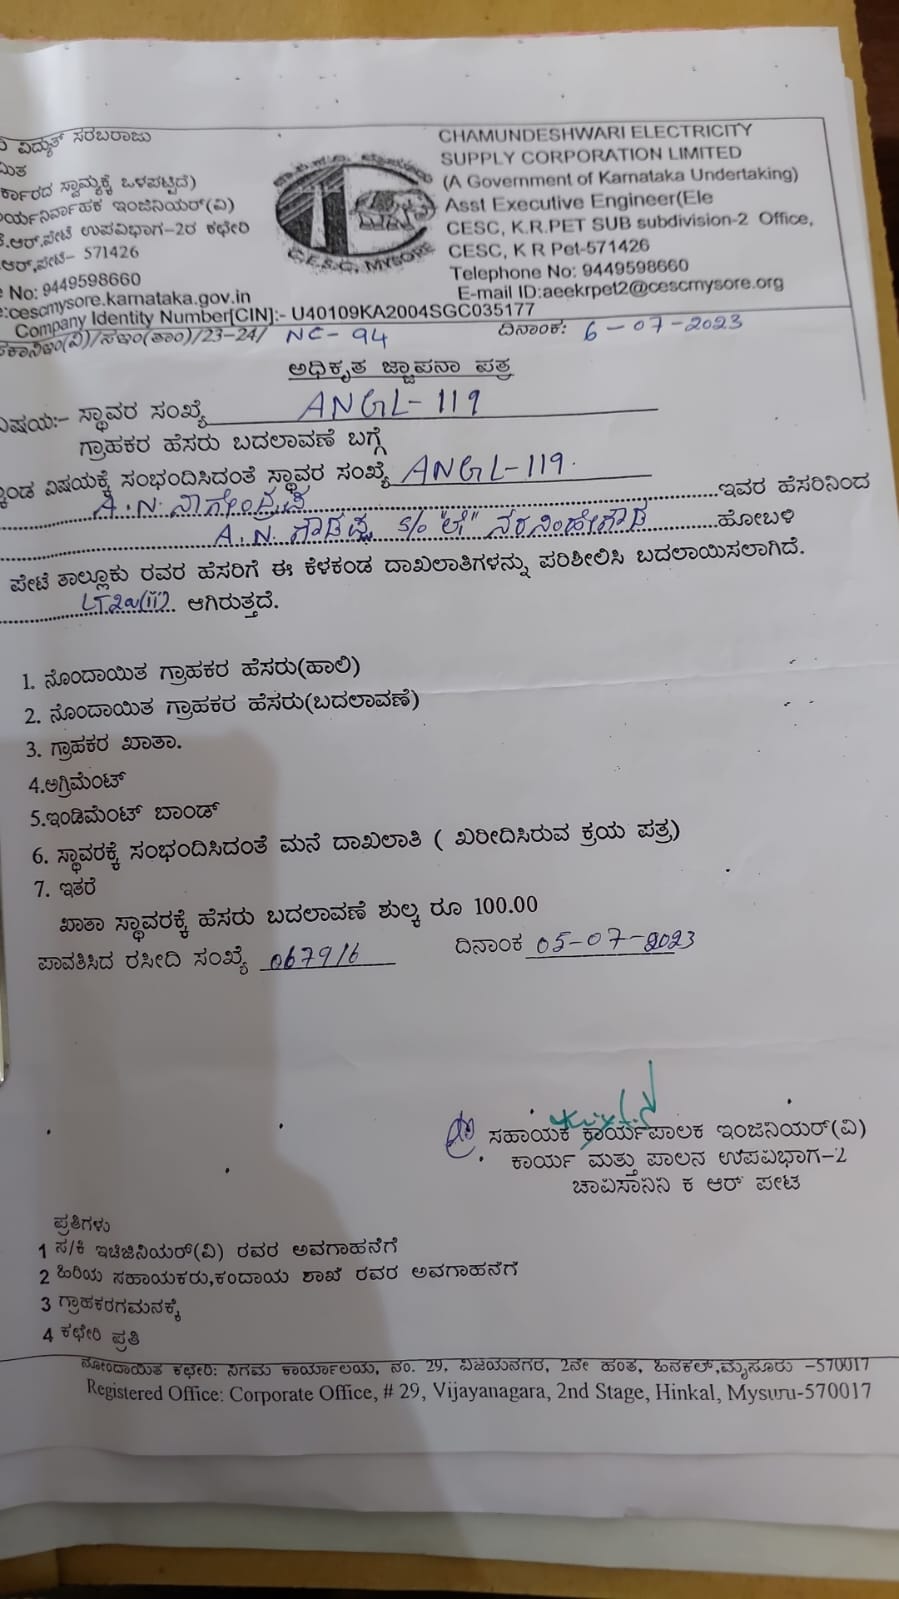 ವಿದ್ಯುತ್ ಸರಬರಾಜು
CHAMUNDESHWARI ELECTRICITY
SUPPLY CORPORATION LIMITED
ರ್ಕಾರದ ಸ್ವಾಮ್ಯಕ್ಕೆ ಒಳಪಟ್ಟಿದೆ)
(A Government of Karnataka Undertaking)
ರ್ಯನಿರ್ವಾಹಕ ಇಂಜಿನಿಯರ್(ವಿ)
Asst Executive Engineer(Ele
ಕೆ.ಆರ್.ಪೇಟೆ ಉಪವಿಭಾಗ-2ರ ಕಛೇರಿ
CESC, K.R.PET SUB subdivision-2 Office,
ಆರ್.ಪೇಟೆ- 571426
CESC, K R Pet-571426
No: 9449598660
Telephone No: 9449598660
:cescmysore.karnataka.gov.in
E-mail ID:aeekrpet2@cescmysore.org
C.E.S.C, MYSORE
Company Identity Number[CIN]:- U40109KA2004SGC035177
/ಸಇಂ(ತಾಂ)/23-24/ NC-94 ದಿನಾಂಕ: 6-07-2023
ಅಧಿಕೃತ ಜ್ಞಾಪನಾ ಪತ್ರ
ವಿಷಯ:- ಸ್ಥಾವರ ಸಂಖ್ಯೆ ANGL-119
ಗ್ರಾಹಕರ ಹೆಸರು ಬದಲಾವಣೆ ಬಗ್ಗೆ
ಂಡ ವಿಷಯಕ್ಕೆ ಸಂಭಂದಿಸಿದಂತೆ ಸ್ಥಾವರ ಸಂಖ್ಯೆ ANGL-119.
A.N. ನಾಗೇಂದ್ರಪ್ಪ ಇವರ ಹೆಸರಿನಿಂದ
A.N. ಗೌಡಪ್ಪ S/o "ಲೇ" ನರಸಿಂಹೇಗೌಡ ಹೋಬಳಿ
ಪೇಟೆ ತಾಲ್ಲೂಕು ರವರ ಹೆಸರಿಗೆ ಈ ಕೆಳಕಂಡ ದಾಖಲಾತಿಗಳನ್ನು ಪರಿಶೀಲಿಸಿ ಬದಲಾಯಿಸಲಾಗಿದೆ.
LT2a(ii) ಆಗಿರುತ್ತದೆ.
1. ನೊಂದಾಯಿತ ಗ್ರಾಹಕರ ಹೆಸರು(ಹಾಲಿ)
2. ನೊಂದಾಯಿತ ಗ್ರಾಹಕರ ಹೆಸರು(ಬದಲಾವಣೆ)
3. ಗ್ರಾಹಕರ ಖಾತಾ.
4.ಅಗ್ರಿಮೆಂಟ್
5.ಇಂಡಿಮೆಂಟ್ ಬಾಂಡ್
6. ಸ್ಥಾವರಕ್ಕೆ ಸಂಭಂದಿಸಿದಂತೆ ಮನೆ ದಾಖಲಾತಿ ( ಖರೀದಿಸಿರುವ ಕ್ರಯ ಪತ್ರ)
7. ಇತರೆ
ಖಾತಾ ಸ್ಥಾವರಕ್ಕೆ ಹೆಸರು ಬದಲಾವಣೆ ಶುಲ್ಕ ರೂ 100.00
ಪಾವತಿಸಿದ ರಸೀದಿ ಸಂಖ್ಯೆ 067916 ದಿನಾಂಕ 05-07-2023
ಸಹಾಯಕ ಕಾರ್ಯಪಾಲಕ ಇಂಜಿನಿಯರ್(ವಿ)
ಕಾರ್ಯ ಮತ್ತು ಪಾಲನ ಉಪವಿಭಾಗ-2
ಚಾವಿಸಾನಿನಿ ಕೆ ಆರ್ ಪೇಟೆ
ಪ್ರತಿಗಳು
1 ಸ/ಕಿ ಇಂಜಿನಿಯರ್(ವಿ) ರವರ ಅವಗಾಹನೆಗೆ
2 ಹಿರಿಯ ಸಹಾಯಕರು,ಕಂದಾಯ ಶಾಖೆ ರವರ ಅವಗಾಹನೆಗೆ
3 ಗ್ರಾಹಕರಗಮನಕ್ಕೆ
4 ಕಛೇರಿ ಪ್ರತಿ
ನೋಂದಾಯಿತ ಕಛೇರಿ: ನಿಗಮ ಕಾರ್ಯಾಲಯ, ನಂ. 29, ವಿಜಯನಗರ, 2ನೇ ಹಂತ, ಹಿನಕಲ್,ಮೈಸೂರು -570017
Registered Office: Corporate Office, # 29, Vijayanagara, 2nd Stage, Hinkal, Mysuru-570017